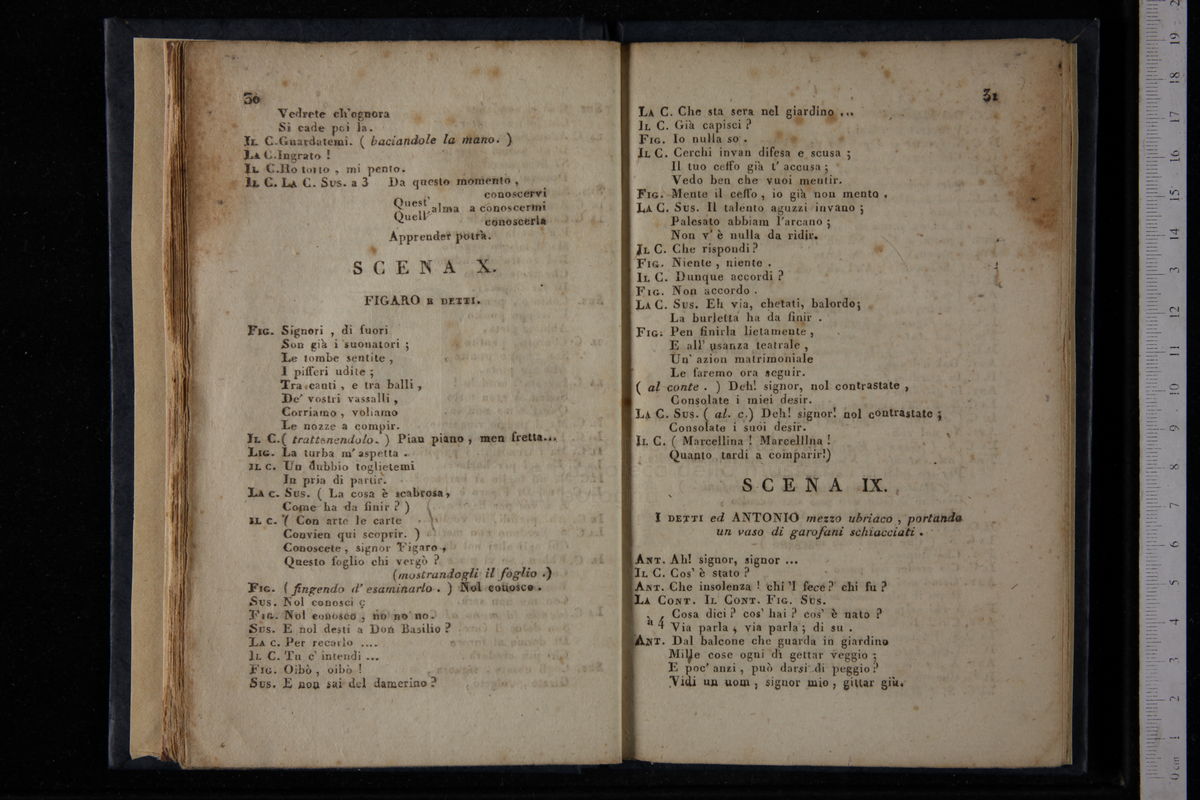 30
Vedrete ch'ognora
Si cade poi la.
IL C. Guardatemi. ( baciandole la mano. )
LA C. Ingrato !
IL C. Ho torto , mi pento.
IL C. LA C. SUS. a 3 Da questo momento ,
conoscervi
Quest' alma a conoscermi
Quell'
conoscerla
Apprender potrà.
SCENA X.
FIGARO E DETTI.
FIG. Signori , di fuori
Son già i suonatori ;
Le tombe sentite ,
I pifferi udite ;
Tra canti , e tra balli ,
De' vostri vassalli ,
Corriamo , voliamo
Le nozze a compir.
IL C. ( trattenendolo. ) Pian piano , men fretta...
LIG. La turba m' aspetta .
IL C. Un dubbio toglietemi
In pria di partir.
LA C. SUS. ( La cosa è scabrosa,
Come ha da finir ? )
IL C. ( Con arte le carte
Convien qui scoprir. )
Conoscete , signor Figaro ,
Questo foglio chi vergò ?
(mostrandogli il foglio .)
FIG. ( fingendo d' esaminarlo . ) Nol conosco .
SUS. Nol conosci ?
FIG. Nol conosco , no no no.
SUS. E nol desti a Don Basilio ?
LA C. Per recarlo ....
IL C. Tu c' intendi ...
FIG. Oibò , oibò !
SUS. E non sai del damerino ?
31
LA C. Che sta sera nel giardino ...
IL C. Già capisci ?
FIG. Io nulla so .
IL C. Cerchi invan difesa e scusa ;
Il tuo ceffo già t' accusa ;
Vedo ben che vuoi mentir.
FIG. Mente il ceffo , io già non mento .
LA C. SUS. Il talento aguzzi invano ;
Palesato abbiam l'arcano ;
Non v' è nulla da ridir.
IL C. Che rispondi ?
FIG. Niente , niente .
IL C. Dunque accordi ?
FIG. Non accordo .
LA C. SUS. Eh via, chetati, balordo;
La burletta ha da finir .
FIG. Pen finirla lietamente ,
E all' usanza teatrale ,
Un' azion matrimoniale
Le faremo ora seguir.
( al conte . ) Deh! signor, nol contrastate ,
Consolate i miei desir.
LA C. SUS. ( al. c.) Deh! signor! nol contrastate ;
Consolate i suoi desir.
IL C. ( Marcellina ! Marcellina !
Quanto tardi a comparir!)
SCENA IX.
I DETTI ed ANTONIO mezzo ubriaco , portando
un vaso di garofani schiacciati .
ANT. Ah! signor, signor ...
IL C. Cos' è stato ?
ANT. Che insolenza ! chi 'l fece ? chi fu ?
LA CONT. IL CONT. FIG. SUS.
Cosa dici ? cos' hai ? cos' è nato ?
a 4 Via parla , via parla ; di su .
ANT. Dal balcone che guarda in giardino
Mille cose ogni dì gettar veggio ;
E poc' anzi , può darsi di peggio ?
Vidi un uom , signor mio , gittar giù.